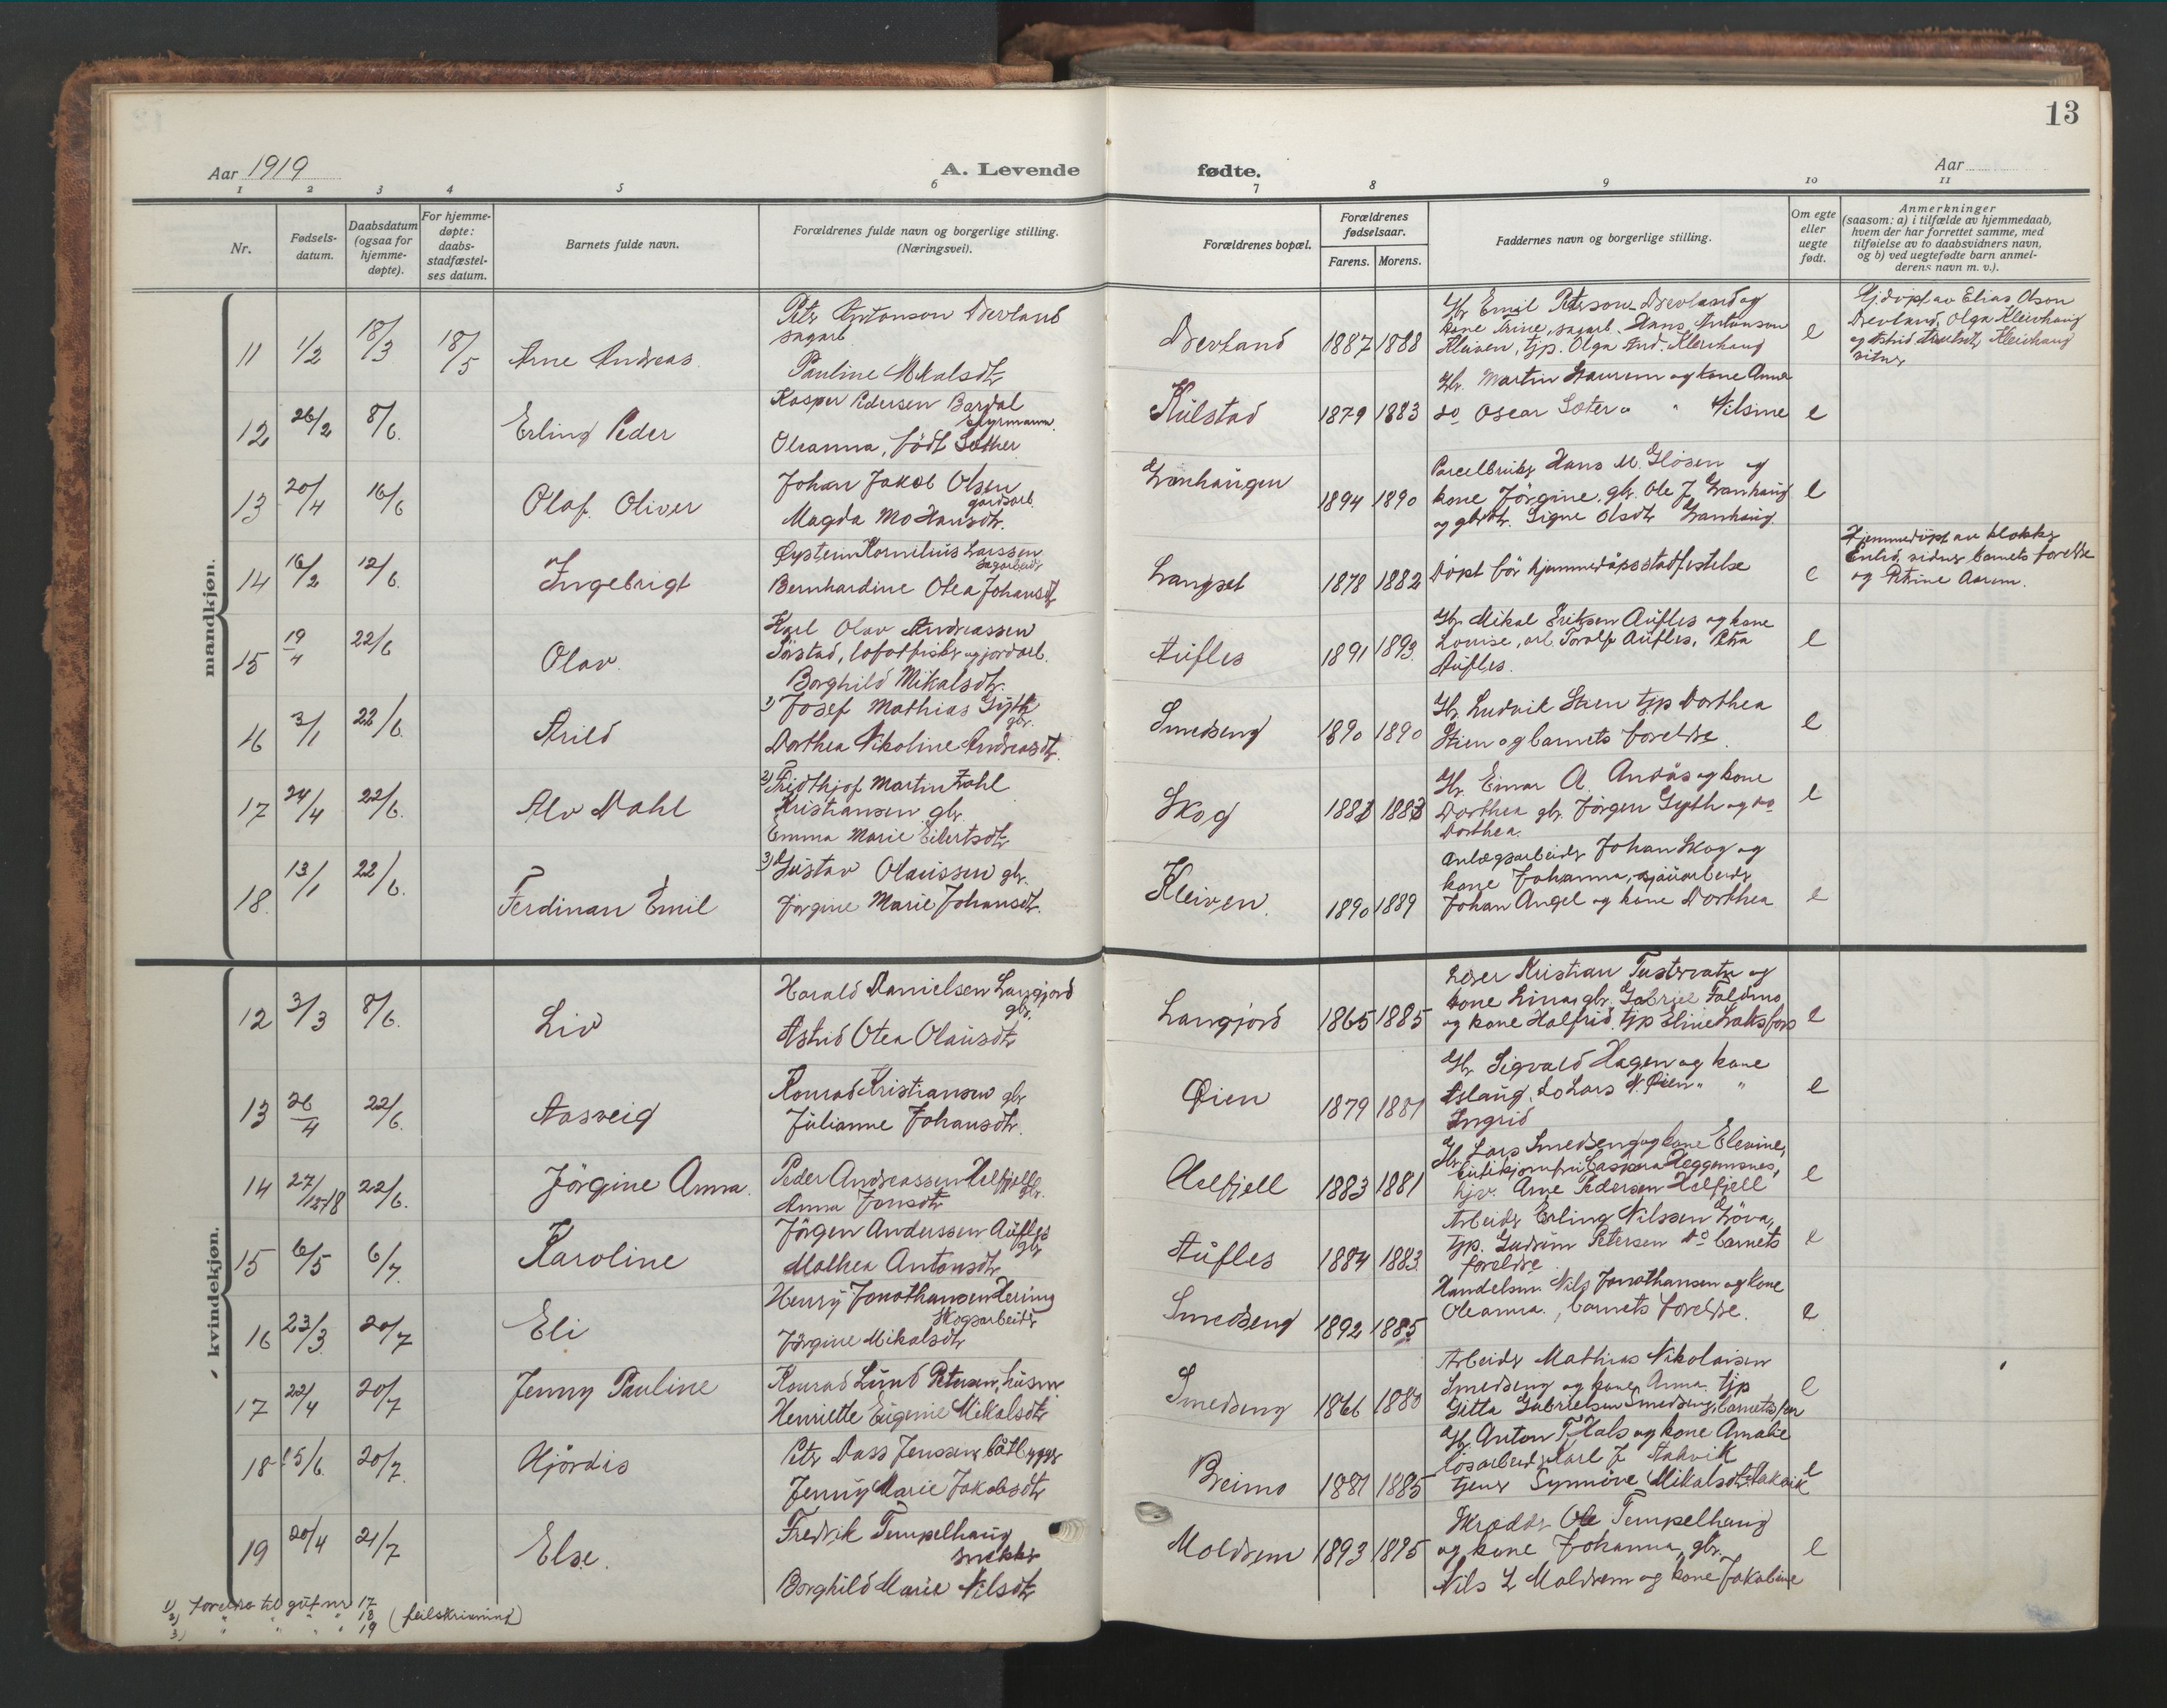 13
Aar 1919
A. Levende fødte.
Aar
1 2 3 4 5 6 7 8 9 10 11
Nr.
Fødsels-
datum.
Daabsdatum
(ogsaa for
hjemme-
døpte).
For hjemme-
døpte:
daabs-
stadfæstel-
ses datum.
Barnets fulde navn.
Forældrenes fulde navn og borgerlige stilling.
(Næringsvei).
Forældrenes bopæl.
Forældrenes
fødselsaar.
Farens. Morens.
Faddernes navn og borgerlige stilling.
Om egte
eller
uegte
født.
Anmerkninger
(saasom: a) i tilfælde av hjemmedaab,
hvem der har forrettet samme, med
tilføielse av to daabsvidners navn,
og b) ved uegtefødte barn anmel-
derens navn m. v.).
mandkjøn.
11 1/2 18/3 18/5 Arne Andreas
Peter Antonson Drevland
sagarb.
Pauline Mikalsdtr
Drevland 1887 1888
Gbr Emil Peterson Drevland og
kone Trine, sagarb. Hans Antonsen
Kleiven, tjp. Olga And. Kleivhaug
e
Hj.døpt av Elias Olson
Drevland, Olga Kleivhaug
og Astrid Kleivhaug
vitner
12 26/2 8/6. Erling Peder
Kasper Pedersen Bardal
styrmann.
Oleanna, født Sæther
Kulstad 1879 1883
Gbr. Martin Laurum og kone Anna
do Oscar Sæter " " Nilsine
e
13 20/4 16/6 Olaf Oliver
Johan Jakob Olsen
gardsarb.
Magda Mo Hansdtr.
Granhaugen 1894 1890
Parcelbruker Hans M. Glosen og
kone Jörgine, gbr. Ole J. Granhaug
og gbrdtr. Signe Olsdtr Granhaug
e
14 16/2 12/6. Ingebrigt
Øystein Kornilius Larssen
sagarbeider
Bernhardine Otea Johansdtr
Langset 1878 1882
Döpt för hjemmedåpsstadfestelse
e
Hjemmedöpt av klokker
Enlid, vidner barnets foreldre
og Petrine Aarem.
15 19/4 22/6 Olav
Karl Olav Andreassen
Sörstad, lofotfisker og jordarb.
Borghild Mikalsdtr.
Aufles 1891 1893.
Gbr. Mikal Eriksen Aufles og kone
Louise, arb. Torolf Aufles, Petra
Aufles.
e
16 3/1 22/6. Arild
1) Josef Mathias Gyth
gbr.
Dorthea Nikoline Andreasdtr.
Smedseng 1890 1890
Gbr. Ludvik Stien tjp Dorthea
Stien og barnets foreldre.
e
17 24/4 22/6. Alv Dahl
2) Fridthjof Martin Zahl
Kristiansen gbr.
Emma Marie Eilertsdtr
Skog
Gbr. Einar A. Andås og kone
Dorthea gbr. Jörgen Gyth og do
Dorthea.
e
18. 13/1 22/6. Ferdinan Emil
3) Gustav Olaussen gbr.
Jörgine Marie Johansdtr.
Kleiven. 1890 1889
Anlægsarbeider Johan Skog og
kone Johanna, sjauarbeider
Johan Angel og kone Dorthea
e
kvindekjøn.
12 3/3 8/6. Liv
Harald Danielsen Langjord
gbr.
Astrid Otea Olausdtr
Langjord 1865 1885
Lærer Kristian Tustervatn og
kone Lina, gbr. Gabriel Faldmo
og kone Halfrid, tjp Eline Laksfors
e
13 26/4 22/6. Aasveig
Konrad Kristiansen gbr
Julianne Johansdtr.
Øien 1879 1881
Gbr Sigvald Hagen og kone
Aslaug. do Lars N. Øien " "
Ingrid
e
14 27/12-18 22/6. Jörgine Anna.
Peder Andreassen Helfjell
gbr.
Anna Jonsdtr
Helfjell 1883 1881
Gbr. Lars Smedseng og kone Elevine,
butikjomfru Caspara Heggemsnes,
hjv. Arne Pedersen Helfjell
e
15 6/5 6/7. Karoline
Jörgen Anderssen Aufles
gbr
Mathea Antonsdtr
Aufles 1884 1883.
Arbeider Erling Nilssen Göva,
tjp. Gudrun Petersen do barnets
foreldre
e
16 23/3. 20/7 Eli
Henry Jonathansen Hering
skogsarbeider
Jörgine Mikalsdtr
Smedseng 1892 1885
Handelsm. Nils Jonathansen og kone
Oleanna., barnets foreldre.
e
17 22/4 20/7 Jenny Pauline
Konrad Lund Petersen, husm.
Henriette Eugenie Mikalsdtr
Smedseng 1866 1880
Arbeider Mathias Nikolaisen
Smedseng og kone Anna. tjp
Gitta Gabrielsen Smedseng, barnets far
e
18 15/6. 20/7. Hjördis
Peter Dass Jenssen, båtbygger
Jenny Marie Jakobsdtr
Breimo 1881 1885
Gbr. Anton T. Hals og kone Amalie
lösarbeider Karl J. Aakvik
tjener Synnöve Mikalsdtr Aakvik
e
19 20/4 21/7 Else.
Fredrik Tempelhaug
snekker
Borghild Marie Nilsdtr
Moldrem 1893 1895
Skrædder Ole Tempelhaug
og kone Johanna, gbr.
Nils L Moldrem og kone Jakobine
e
1) Foreldre til gut nr 17
2) " " " " 18 (feilskrivning)
3) " " " " 19